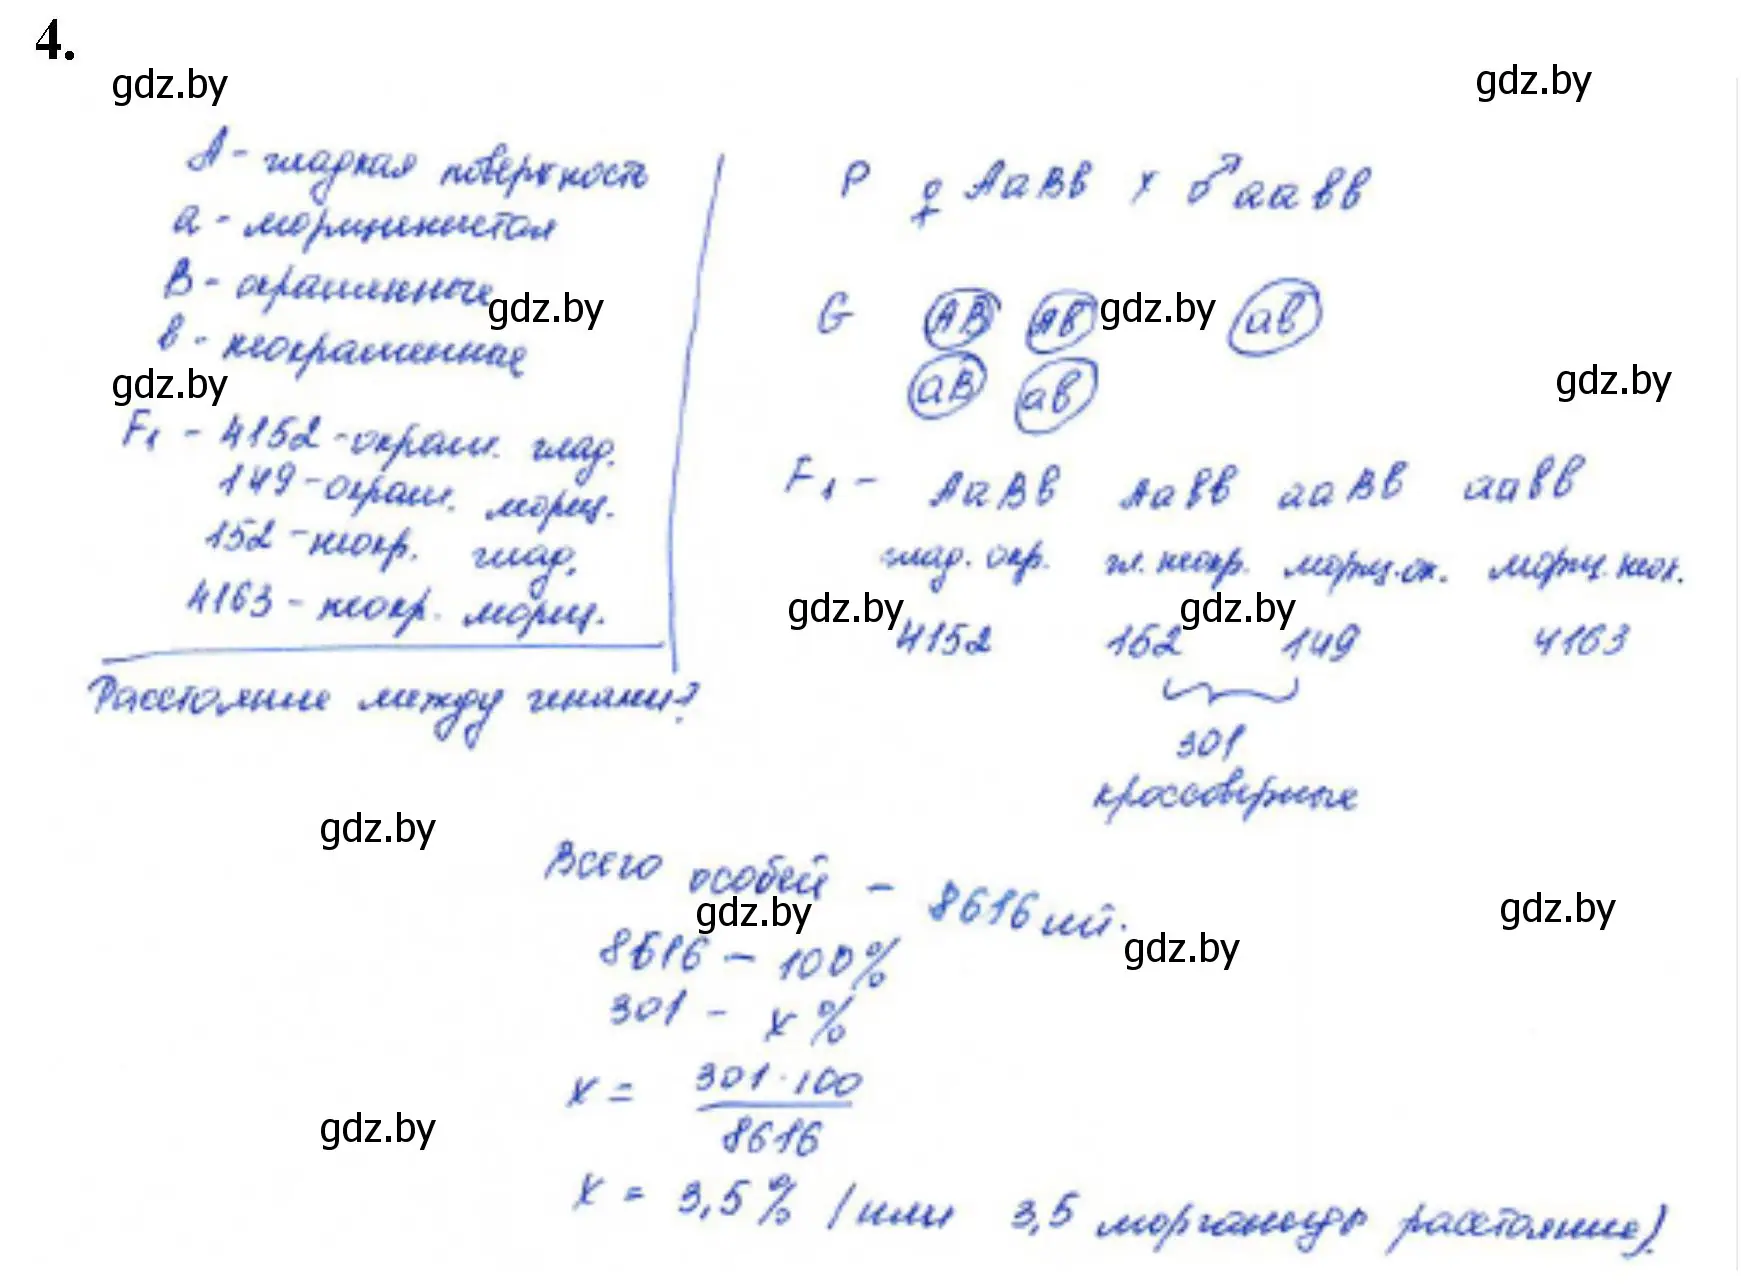 4.
gdz.by
gdz.by
А - гладкая поверхность
а - морщинистая
В - окрашенные
gdz.by
в - неокрашенные
gdz.by
F₁ - 4152 - окраш. глад.
149 - окраш. морщ.
152 - неокр. глад.
4163 - неокр. морщ.
Расстояние между генами?
P ♀ АаВв х ♂ аавв
G АВ Ав gdz.by ав
аВ ав
gdz.by
F₁ - АаВв Аавв ааВв аавв
глад. окр. гл. неокр. морщ. ок. морщ. неок.
gdz.by gdz.by
4152 152 149 4163
301
кроссоверные
gdz.by
Всего особей - 8616 шт.
gdz.by
gdz.by
gdz.by
8616 - 100%
301 - х %
х = 301 · 100
8616
gdz.by
х = 3,5% (или 3,5 морганиды расстояние).